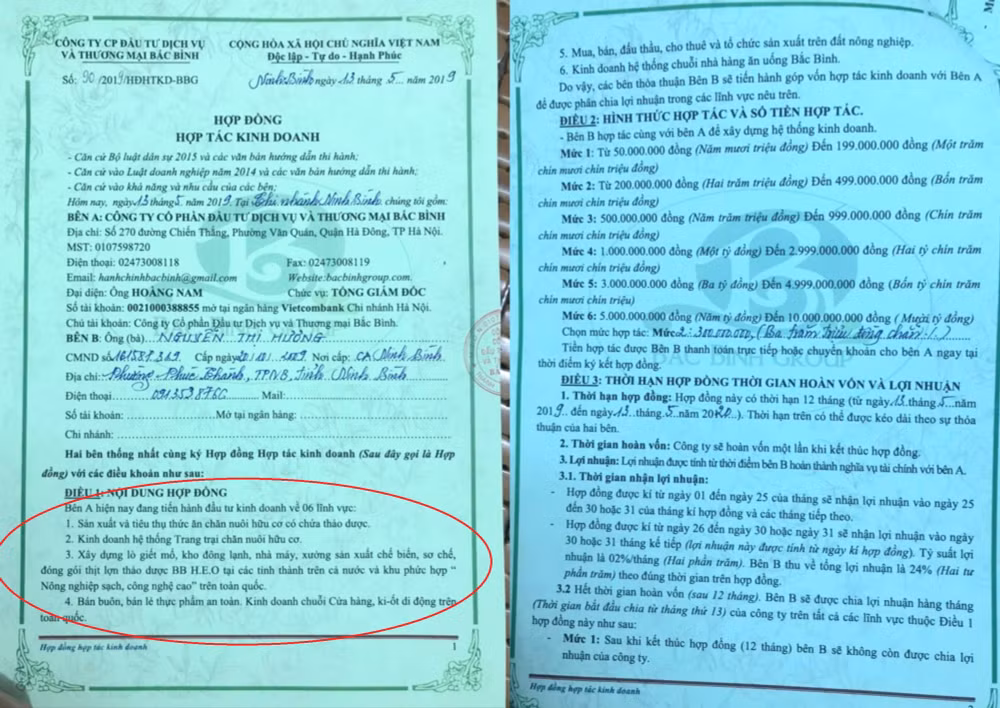 CÔNG TY CP ĐẦU TƯ DỊCH VỤ
VÀ THƯƠNG MẠI BẮC BÌNH
CỘNG HÒA XÃ HỘI CHỦ NGHĨA VIỆT NAM
Độc lập - Tự do - Hạnh Phúc
Số: 90/2019/HĐHTKD-BBG
Ninh Bình ngày 13 tháng 5 năm 2019
HỢP ĐỒNG
HỢP TÁC KINH DOANH
- Căn cứ Bộ luật dân sự 2015 và các văn bản hướng dẫn thi hành;
- Căn cứ vào Luật doanh nghiệp năm 2014 và các văn bản hướng dẫn thi hành;
- Căn cứ vào khả năng và nhu cầu của các bên;
Hôm nay, ngày 13 tháng 5 năm 2019 Tại Chi nhánh Ninh Bình chúng tôi gồm:
BÊN A: CÔNG TY CỔ PHẦN ĐẦU TƯ DỊCH VỤ VÀ THƯƠNG MẠI BẮC BÌNH
Địa chỉ: Số 270 đường Chiến Thắng, Phường Văn Quán, Quận Hà Đông, TP Hà Nội.
MST: 0107598720
Điện thoại: 02473008118 Fax: 02473008119
Email: hanhchinhbacbinh@gmail.com Website:bacbinhgroup.com.
Đại diện: Ông HOÀNG NAM Chức vụ: TỔNG GIÁM ĐỐC
Số tài khoản: 0021000388855 mở tại ngân hàng Vietcombank Chi nhánh Hà Nội.
Chủ tài khoản: Công ty Cổ phần Đầu tư Dịch vụ và Thương mại Bắc Bình.
BÊN B: Ông (bà)... NGUYỄN THỊ HƯƠNG
CMND số 161581369 Cấp ngày Nơi cấp: CA Ninh Bình
Địa chỉ: Phường Phúc Khánh, TPNB, Tỉnh Ninh Bình
Điện thoại Mail:
Số tài khoản: Mở tại ngân hàng:
Chi nhánh:
Hai bên thống nhất cùng ký Hợp đồng Hợp tác kinh doanh (Sau đây gọi là Hợp
đồng) với các điều khoản như sau:
ĐIỀU 1: NỘI DUNG HỢP ĐỒNG
Bên A hiện nay đang tiến hành đầu tư kinh doanh về 06 lĩnh vực:
1. Sản xuất và tiêu thụ thức ăn chăn nuôi hữu cơ có chứa thảo dược.
2. Kinh doanh hệ thống Trang trại chăn nuôi hữu cơ.
3. Xây dựng lò giết mổ, kho đông lạnh, nhà máy, xưởng sản xuất chế biến, sơ chế,
đóng gói thịt lợn thảo dược BB H.E.O tại các tỉnh thành trên cả nước và khu phức hợp "
Nông nghiệp sạch, công nghệ cao" trên toàn quốc.
4. Bán buôn, bán lẻ thực phẩm an toàn. Kinh doanh chuỗi Cửa hàng, ki-ốt di động trên
toàn quốc.
Hợp đồng hợp tác kinh doanh 1
5. Mua, bán, đấu thầu, cho thuê và tổ chức sản xuất trên đất nông nghiệp.
6. Kinh doanh hệ thống chuỗi nhà hàng ăn uống Bắc Bình.
Do vậy, các bên thỏa thuận Bên B sẽ tiến hành góp vốn hợp tác kinh doanh với Bên A
để được phân chia lợi nhuận trong các lĩnh vực nêu trên.
ĐIỀU 2: HÌNH THỨC HỢP TÁC VÀ SỐ TIỀN HỢP TÁC.
- Bên B hợp tác cùng với bên A để xây dựng hệ thống kinh doanh.
Mức 1: Từ 50.000.000 đồng (Năm mươi triệu đồng) Đến 199.000.000 đồng (Một trăm
chín mươi chín triệu đồng)
Mức 2: Từ 200.000.000 đồng (Hai trăm triệu đồng) Đến 499.000.000 đồng (Bốn trăm
chín mươi chín triệu đồng)
Mức 3: 500.000.000 đồng (Năm trăm triệu đồng) Đến 999.000.000 đồng (Chín trăm
chín mươi chín triệu đồng)
Mức 4: 1.000.000.000 đồng (Một tỷ đồng) Đến 2.999.000.000 đồng (Hai tỷ chín trăm
chín mươi chín triệu đồng)
Mức 5: 3.000.000.000 đồng (Ba tỷ đồng) Đến 4.999.000.000 đồng (Bốn tỷ chín trăm
chín mươi chín triệu)
Mức 6: 5.000.000.000 đồng (Năm tỷ đồng) Đến 10.000.000.000 đồng ( Mười tỷ đồng)
Chọn mức hợp tác: Mức 2: 300.000.000, (Ba trăm triệu đồng chẵn./.)
Tiền hợp tác được Bên B thanh toán trực tiếp hoặc chuyển khoản cho bên A ngay tại
thời điểm ký kết hợp đồng.
BAC BINH GROUP
ĐIỀU 3: THỜI HẠN HỢP ĐỒNG THỜI GIAN HOÀN VỐN VÀ LỢI NHUẬN
1. Thời hạn hợp đồng: Hợp đồng này có thời hạn 12 tháng (từ ngày 13 tháng 5 năm
2019 đến ngày 13 tháng 5 năm 2020). Thời hạn trên có thể được kéo dài theo sự thỏa
thuận của hai bên.
2. Thời gian hoàn vốn: Công ty sẽ hoàn vốn một lần khi kết thúc hợp đồng.
3. Lợi nhuận: Lợi nhuận được tính từ thời điểm bên B hoàn thành nghĩa vụ tài chính với bên A.
3.1. Thời gian nhận lợi nhuận:
- Hợp đồng được kí từ ngày 01 đến ngày 25 của tháng sẽ nhận lợi nhuận vào ngày 25
đến 30 hoặc 31 của tháng kí hợp đồng và các tháng tiếp theo.
- Hợp đồng được kí từ ngày 26 đến ngày 30 hoặc ngày 31 sẽ nhận lợi nhuận vào ngày
30 hoặc 31 tháng kế tiếp (lợi nhuận này được tính từ ngày kí hợp đồng). Tỷ suất lợi
nhuận là 02%/tháng (Hai phần trăm). Bên B thu về tổng lợi nhuận là 24% (Hai tư
phần trăm) theo đúng thời gian trên hợp đồng.
3.2 Hết thời gian hoàn vốn (sau 12 tháng). Bên B sẽ được chia lợi nhuận hàng tháng
(Thời gian bắt đầu chia từ tháng thứ 13) của công ty trên tất cả các lĩnh vực thuộc Điều 1
hợp đồng này như sau:
- Mức 1: Sau khi kết thúc hợp đồng (12 tháng) bên B sẽ không còn được chia lợi
nhuận của công ty.
Hợp đồng hợp tác kinh doanh